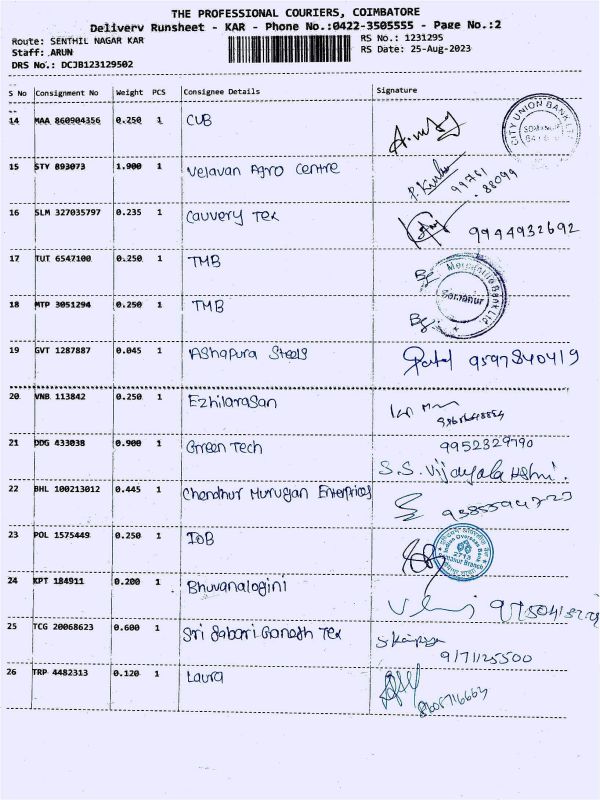 THE PROFESSIONAL COURIERS, COIMBATORE
Delivery Runsheet - KAR - Phone No.:0422-3505555 - Page No.:2
Route: SENTHIL NAGAR KAR
RS No.: 1231295
Staff: ARUN
RS Date: 25-Aug-2023
DRS No.: DCJB123129502
S No Consignment No Weight PCS Consignee Details Signature
14 MAA 860904356 0.250 1 CUB
CITY UNION BANK LTD
SOMANUR
15 STY 893073 1.900 1 Velavan Agro Centre
99761
88099
16 SLM 327035797 0.235 1 Cauvery Tex
9994932692
17 TUT 6547100 0.250 1 TMB
Mercantile Bank Ltd.
Somanur
18 MTP 3051294 0.250 1 TMB
19 GVT 1287887 0.045 1 Ashapura Steels Patel 9597840419
20 VNB 113842 0.250 1 Ezhilarasan
21 DDG 433038 0.900 1 Green Tech 9952329790
S.S. Vijayalakshmi.
22 BHL 100213012 0.445 1 Chandhur Murugan Enterprices
23 POL 1575449 0.250 1 IOB
Indian Overseas Bank
2713
Somanur Branch
24 KPT 184911 0.200 1 Bhuvanalogini
25 TCG 20068623 0.600 1 Sri Sabari Ganesh Tex
9171125500
26 TRP 4482313 0.120 1 Laura